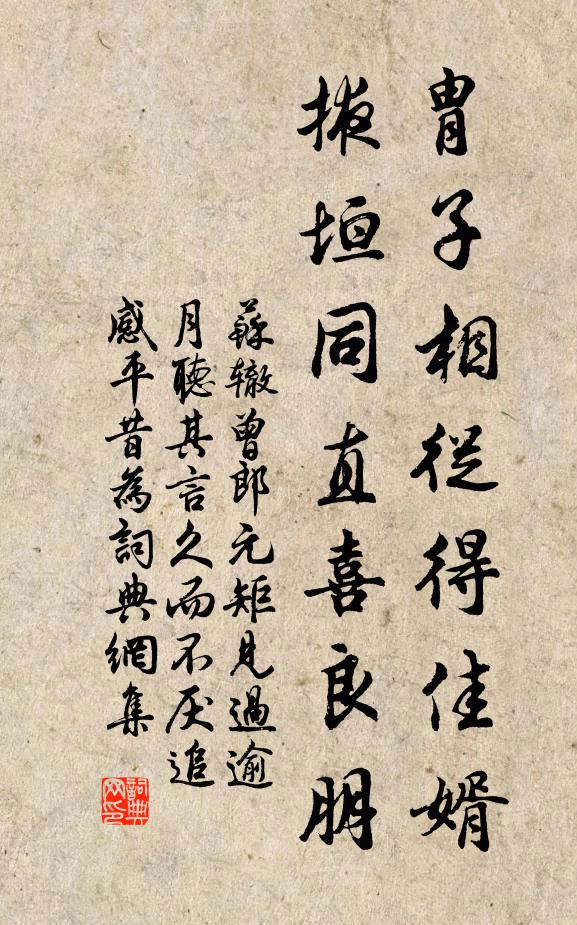 胄子相從得佳婿
掖垣同直喜良朋
蘇轍曾郎元矩見過逾
月聽其言久而不厌追
感平昔為詞典網集
詞典
网印